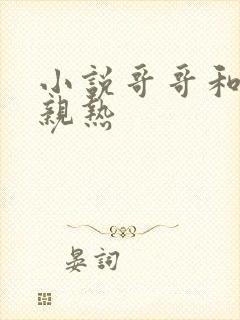 小説哥哥和
親熱
晏詞